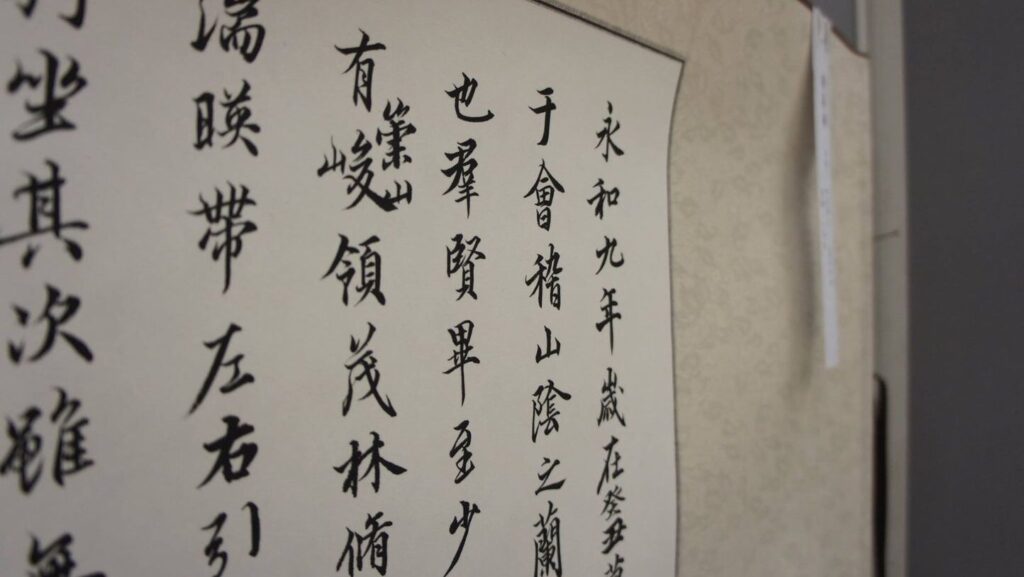 永和九年歲在癸丑
于會稽山陰之蘭
也羣賢畢至少
有崇山峻領茂林脩
湍暎帶左右引
坐其次雖無